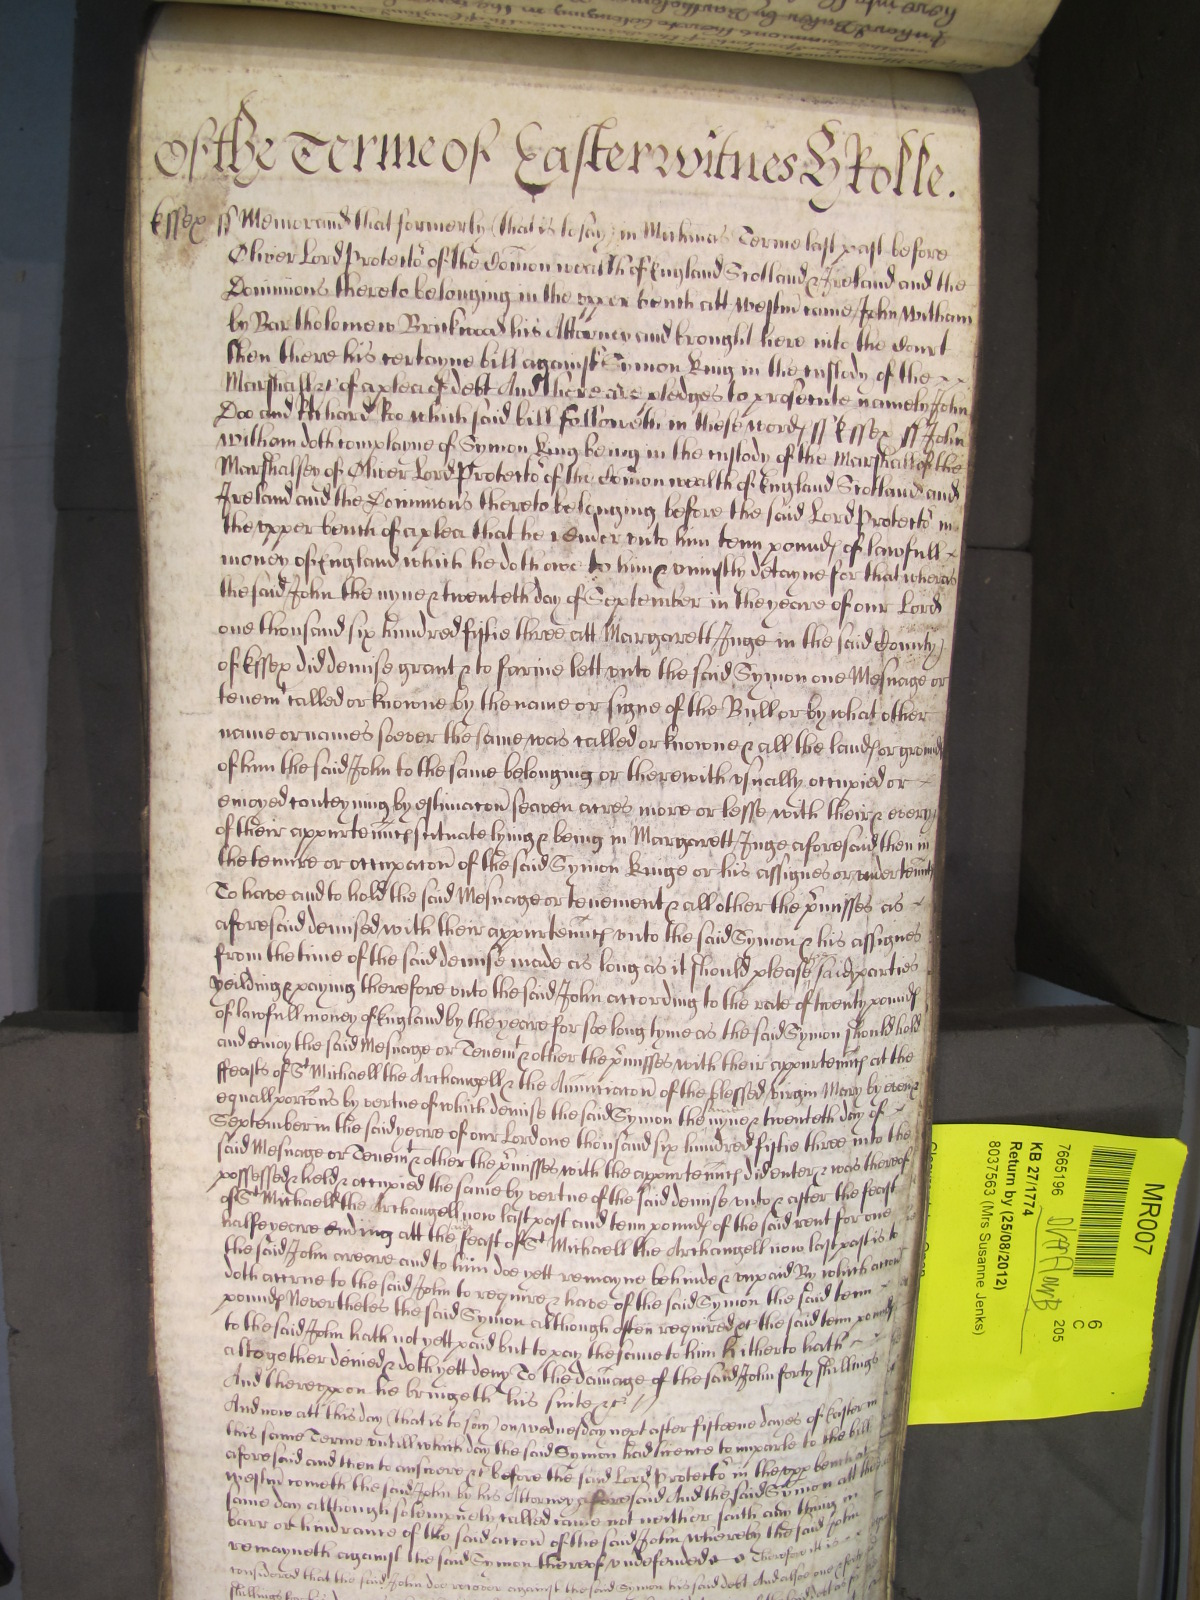 Of the Terme of Easter witnes H Rolle.
Essex ss Memorand that formerly (that is to say) in Michmas Terme last past before
Oliver Lord Protector of the Comon wealth of England Scotland & Ireland and the
Dominions thereto belonging in the upper bench att Westm came John Witham
by Bartholomew Brickwood his Attorney and brought here into the Court
then there his certayne bill against Symon King in the custody of the
Marshall &c of a plea of debt And there are pledges to prosecute namely John
Doo and Richard Roo which said bill followeth in these words ss Essex ss John
Witham doth complayne of Symon King being in the custody of the Marshall of the
Marshalsey of Oliver Lord Protector of the Comon wealth of England Scotland and
Ireland and the Dominions thereto belonging before the said Lord Protector in
the upper bench of a plea that he render unto him tenn pounds of lawfull
money of England which he doth owe to him & uniustly detayne for that wheras
the said John the nyne & twenteth day of September in the yeare of our Lord
one thousand six hundred fiftie three att Margarett Inge in the said County
of Essex did demise grant & to farme lett unto the said Symon one Mesuage or
tenemt called or knowne by the name or signe of the Bull or by what other
name or names soever the same was called or knowne & all the lands or grounds
of him the said John to the same belonging or therewith usually occupied or
enioyed conteyning by estimacon seaven acres more or lesse with their & every
of their appurtennces situate lying & being in Margarett Inge aforesaid then in
the tenure or occupacon of the said Symon Kinge or his assignes or undertennts
To have and to hold the said Mesuage or tenement & all other the pmisses as
aforesaid demised with their appurtennces unto the said Symon & his assignes
from the time of the said demise made as long as it should please said parties
yeilding & paying therefore unto the said John according to the rate of twenty pounds
of lawfull money of England by the yeare for soe long tyme as the said Symon should hold
and enioy the said Mesuage or Tenemt & other the pmisses with their appurtennces at the
ffeasts of St Michaell the Archangell & the Annunciacon of the blessed virgin Mary by even &
equall porcons by vertue of which demise the said Symon the nyne & twenteth day of
September in the said yeare of our Lord one thousand six hundred fiftie three into the
said Mesuage or Tenemt & other the pmisses with the appurtennces did enter & was thereof
possessed & held & occupied the same by vertue of the said demise unto & after the feast
of St Michaell the Archangell now last past and tenn pounds of the said rent for one
halfe yeare ending att the feast of St Michaell the Archangell now last past is to
the said John areare and to him doe yett remayne behinde & unpaid By which accon
doth accrue to the said John to require & have of the said Symon the said tenn
pounds Nevertheles the said Symon although often required &c the said tenn pounds
to the said John hath not yett paid but to pay the same to him hitherto hath
altogether denied & doth yett deny To the damage of the said John forty shillings
And thereupon he bringeth his suite &c
And now att this day (that is to say) on wednesday next after fifteene dayes of Easter in
this same Terme untill which day the said Symon had licence to imparle to the bill
aforesaid and then to answere &c before the said Lord Protector in the upper bench at
Westm cometh the said John by his Attorney aforesaid And the said Symon att the
same day although solempnely called came not neither saith any thing in
barr or hindrance of the said accon of the said John whereby the said John
remayneth against the said Symon thereof undefended Therefore it is
considered that the said John doe recover against the said Symon his said debt And alsoe
shillings
MR007
6
C
205
7665196
KB 27/1774
Return by (25/08/2012)
8037563 (Mrs Susanne Jenks)